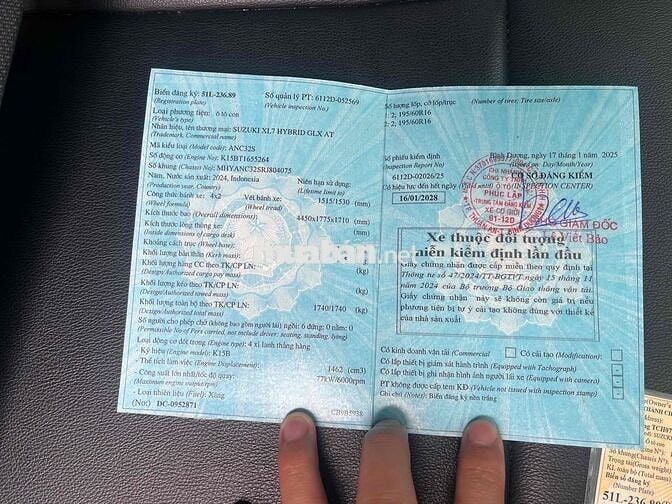 Biển đăng ký: 51L-236.89
(Registration plate)
Số quản lý PT: 6112D-052569
(Vehicle inspection No.)
Loại phương tiện: ô tô con
(Vehicle's type)
Nhãn hiệu, tên thương mại: SUZUKI XL7 HYBRID GLX AT
(Trademark, Commercial name)
Mã kiểu loại (Model code): ANC32S
Số động cơ (Engine No): K15BT1655264
Số khung (Chassis No): MHYANC32SRJ804075
Năm, Nước sản xuất: 2024, Indonesia
(Production year, Country)
Niên hạn sử dụng:
(Lifetime limit to)
Công thức bánh xe: 4x2
(Wheel formula)
Vết bánh xe:
(Wheel tread)
1515/1530 (mm)
Kích thước bao (Overall dimensions): 4450x1775x1710 (mm)
Kích thước lòng thùng xe:
(Inside dimensions of cargo deck) (mm)
Khoảng cách trục (Wheel base): (mm)
Khối lượng bản thân (Kerb mass): (kg)
Khối lượng hàng CC theo TK/CP LN:
(Design/Authorized cargo pay mass) (kg)
Khối lượng kéo theo TK/CP LN:
(Design/Authorized towed mass) (kg)
Khối lượng toàn bộ theo TK/CP LN: 1740/1740 (kg)
(Design/Authorized total mass)
Số người cho phép chở (không bao gồm người lái) ngồi: 6 đứng: 0 nằm: 0
(Permissible No of Pers carried, not include driver: seating, standing, lying)
Loại động cơ đốt trong (Engine type): 4 xi lanh thẳng hàng
- Ký hiệu (Engine model): K15B
- Thể tích làm việc (Engine Displacement): 1462 (cm3)
- Công suất lớn nhất/tốc độ quay: 77kW/6000rpm
(Maximum engine output/rpm)
- Loại nhiên liệu (Fuel): Xăng
(No:) DC-0952871
Số lượng lốp, cỡ lốp/trục
(Number of tires; Tire size/axle)
: 2; 195/60R16
: 2; 195/60R16
Số phiếu kiểm định
(Inspection Report No)
6112D-02026/25
Bình Dương, ngày 17 tháng 1 năm 2025
(Issued on: Day/Month/Year)
Có hiệu lực đến hết ngày
16/01/2028
CƠ SỞ ĐĂNG KIỂM
(INSPECTION CENTER)
CHI NHÁNH
CÔNG TY
PHÚC LẬP
TRUNG TÂM ĐĂNG KIỂM
XE CƠ GIỚI
61-12D
GIÁM ĐỐC
Lê Viết Bảo
Xe thuộc đối tượng
miễn kiểm định lần đầu
Giấy chứng nhận được cấp miễn theo quy định tại
Thông tư số 47/2024/TT-BGTVT ngày 15 tháng 11
năm 2024 của Bộ trưởng Bộ Giao thông vận tải.
Giấy chứng nhận này sẽ không còn giá trị nếu
phương tiện bị tự ý cải tạo không đúng với thiết kế
của nhà sản xuất
Có kinh doanh vận tải (Commercial
Có cải tạo (Modification):
Có lắp thiết bị giám sát hành trình (Equipped with Tachograph)
Có lắp thiết bị ghi nhận hình ảnh người lái xe (Equipped with camera)
PT không được cấp tem KĐ (Vehicle not issued with inspection stamp)
Ghi chú (Notes): Biển đăng ký nền trắng
muaban.net
Số khung(Chassis N°)
Biển số đăng ký
(Number Plate)
51L-236.89